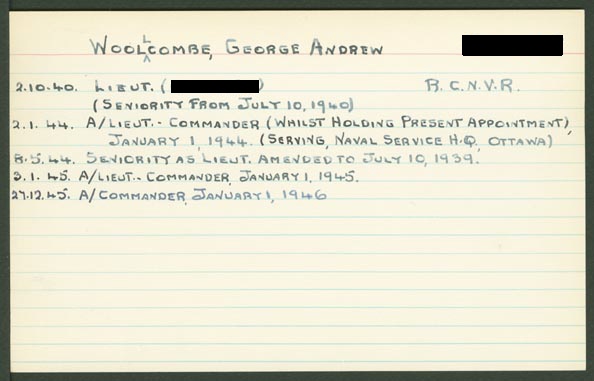 WOOLLCOMBE, GEORGE ANDREW
2.10.40. LIEUT. ( ) R.C.N.V.R.
(SENIORITY FROM JULY 10, 1940)
2.1.44. A/LIEUT.- COMMANDER (WHILST HOLDING PRESENT APPOINTMENT),
JANUARY 1, 1944. (SERVING, NAVAL SERVICE H.Q. OTTAWA)
8.5.44. SENIORITY AS LIEUT. AMENDED TO JULY 10, 1939.
3.1.45. A/LIEUT.- COMMANDER, JANUARY 1, 1945.
27.12.45. A/COMMANDER, JANUARY 1, 1946